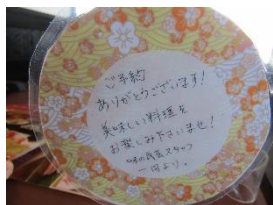 ご予約
ありがとうございます!
美味しい料理を
お楽しみ下さいませ!
味の民芸スタッフ
一同より。